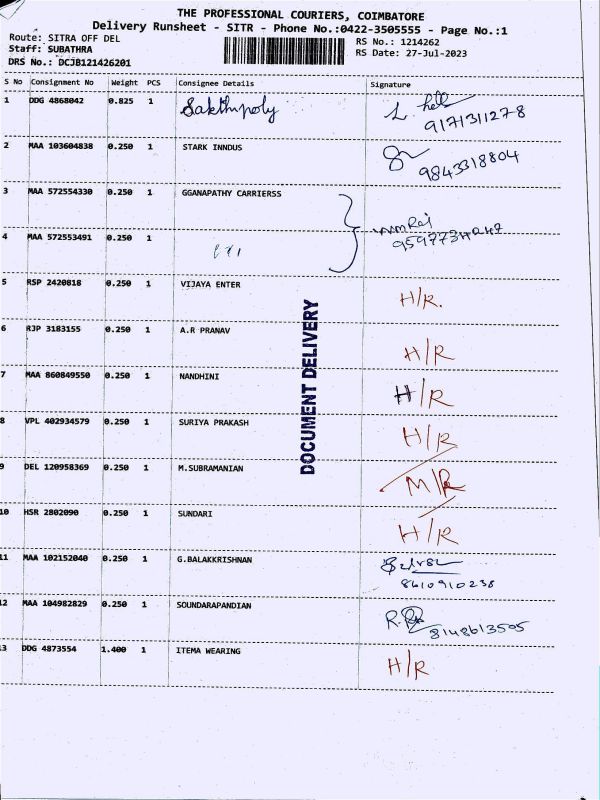 THE PROFESSIONAL COURIERS, COIMBATORE
Delivery Runsheet - SITR - Phone No.:0422-3505555 - Page No.:1
Route: SITRA OFF DEL
RS No.: 1214262
Staff: SUBATHRA
RS Date: 27-Jul-2023
DRS No.: DCJB121426201
S No Consignment No Weight PCS Consignee Details Signature
1 DDG 4868042 0.825 1 Sakthipoly
9171311278
2 MAA 103604838 0.250 1 STARK INNDUS
9843318804
3 MAA 572554330 0.250 1 GGANAPATHY CARRIERSS
4 MAA 572553491 0.250 1
5 RSP 2420818 0.250 1 VIJAYA ENTER H/R.
6 RJP 3183155 0.250 1 A.R PRANAV H/R
7 MAA 860849550 0.250 1 NANDHINI H/R
8 VPL 402934579 0.250 1 SURIYA PRAKASH H/R
9 DEL 120958369 0.250 1 M.SUBRAMANIAN M/R
10 HSR 2802090 0.250 1 SUNDARI H/R
11 MAA 102152040 0.250 1 G.BALAKKRISHNAN
8610910238
12 MAA 104982829 0.250 1 SOUNDARAPANDIAN
8148613505
13 DDG 4873554 1.400 1 ITEMA WEARING H/R
DOCUMENT DELIVERY